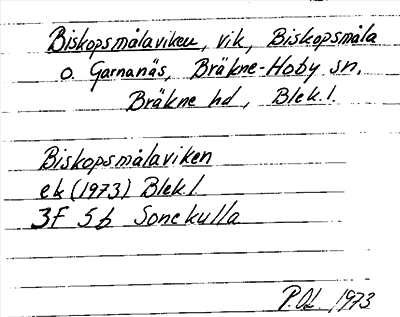 Biskopsmålaviken, vik, Biskopsmåla
o. Garnanäs, Bräkne-Hoby sn.
Bräkne hd, Blek.l.
Biskopsmålaviken
ek (1973) Blek.l
3F 5b Sonekulla
P.OL. 1973